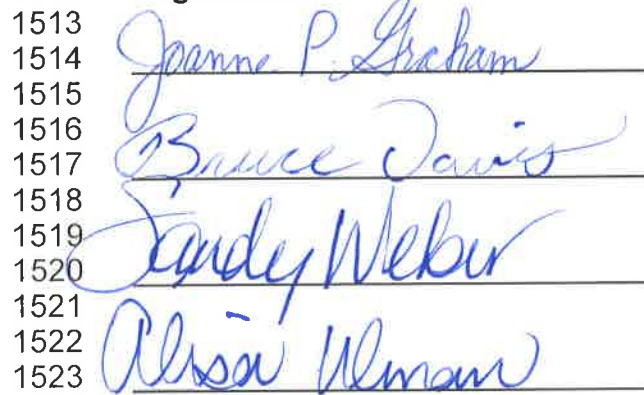 1513
1514 Joanne P. Graham
1515
1516
1517 Bruce Davis
1518
1519
1520 Sandy Weber
1521
1522
1523 Alissa Ulman